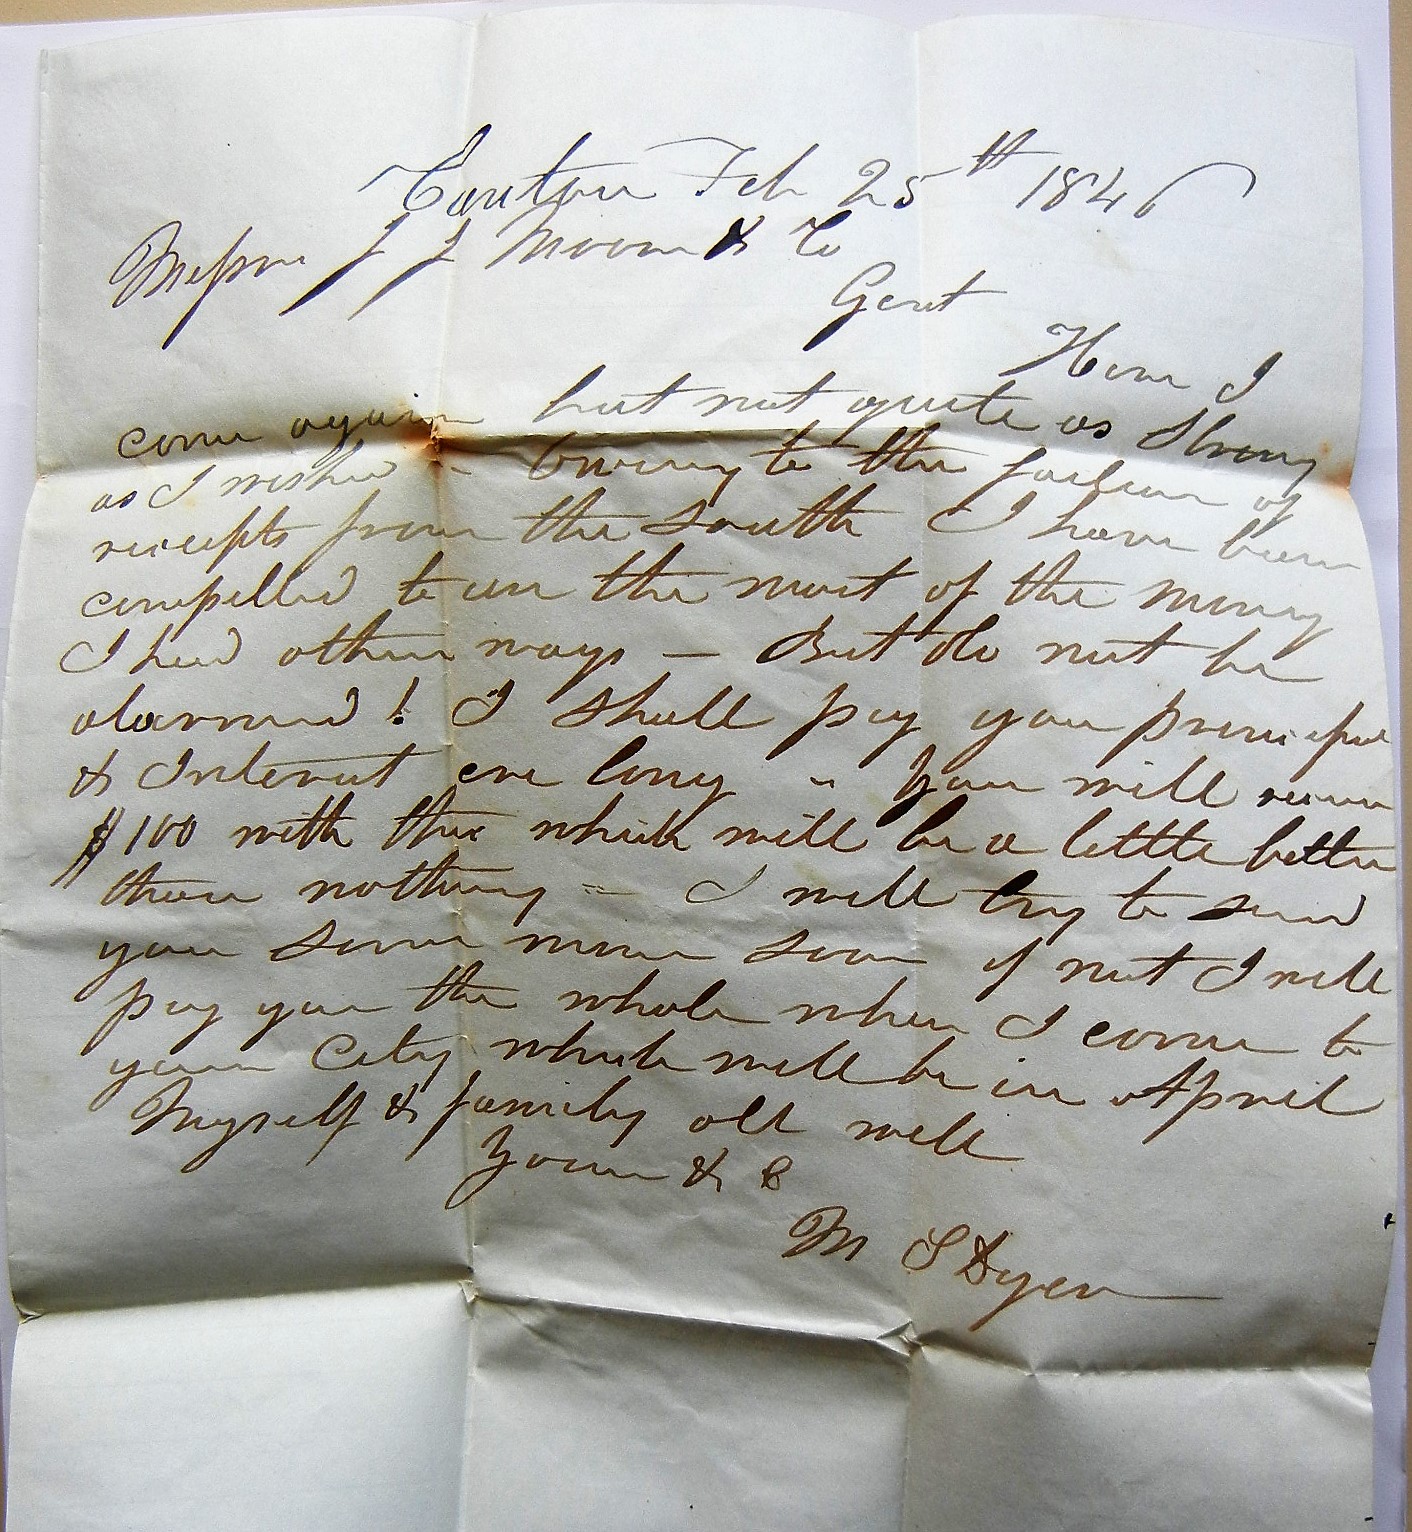 Canton Feb 25th 1846
Messrs J J Moore & Co
Gent
Here I
come again but not quite as strong
as I wished - Owing to the failure of
receipts from the South I have been
compelled to use the most of the money
I had other ways — But do not be
alarmed! I shall pay you principal
& Interest ere long - You will receive
$100 with this which will be a little better
than nothing - I will try to send
you some more soon if not I will
pay you the whole when I come to
your City which will be in April
Myself & family all well
Yours & C
M S Dyer